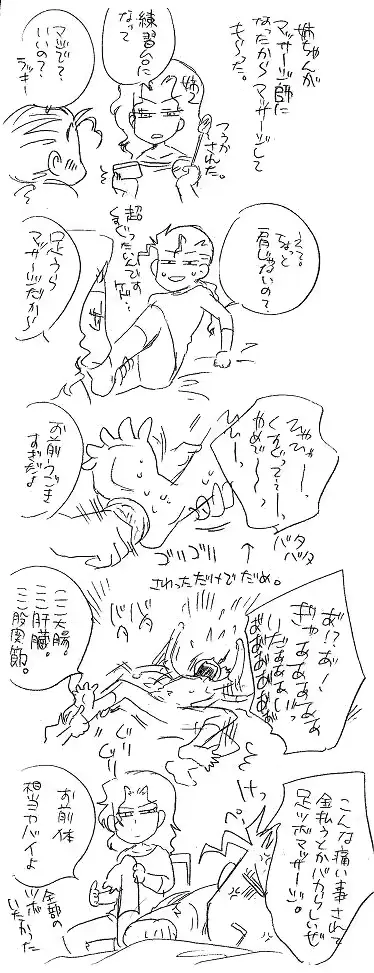 姉ちゃんが
マッサージ師に
なったからマッサージして
もらった。
つうか
された。
姉
練習台に
なって
マジで?
いいの?
ラッキー
えっ。
ちょっと
肩じゃないの?
超
くすぐったいんです
けど…
足うら
マッサージだから
ひゃひゃー、
くすぐってー、
やめでー、
ひー、
バタ
バタ
お前うごき
すぎだよ
ゴリゴリ
↑
さわっただけでだめ。
あ!?あ!
ぎゃあああああ
いだぁぁぁいっ
ああああああ
バタ
バタ
ここ大腸。
ここ肝臓。
ここ股関節。
ぐりぐり
こんな痛い事されて
金払うとかバカらしいぜ
足ツボマッサージ。
けっ
お前体
相当ヤバイよ
全部の
ツボ
いたかった